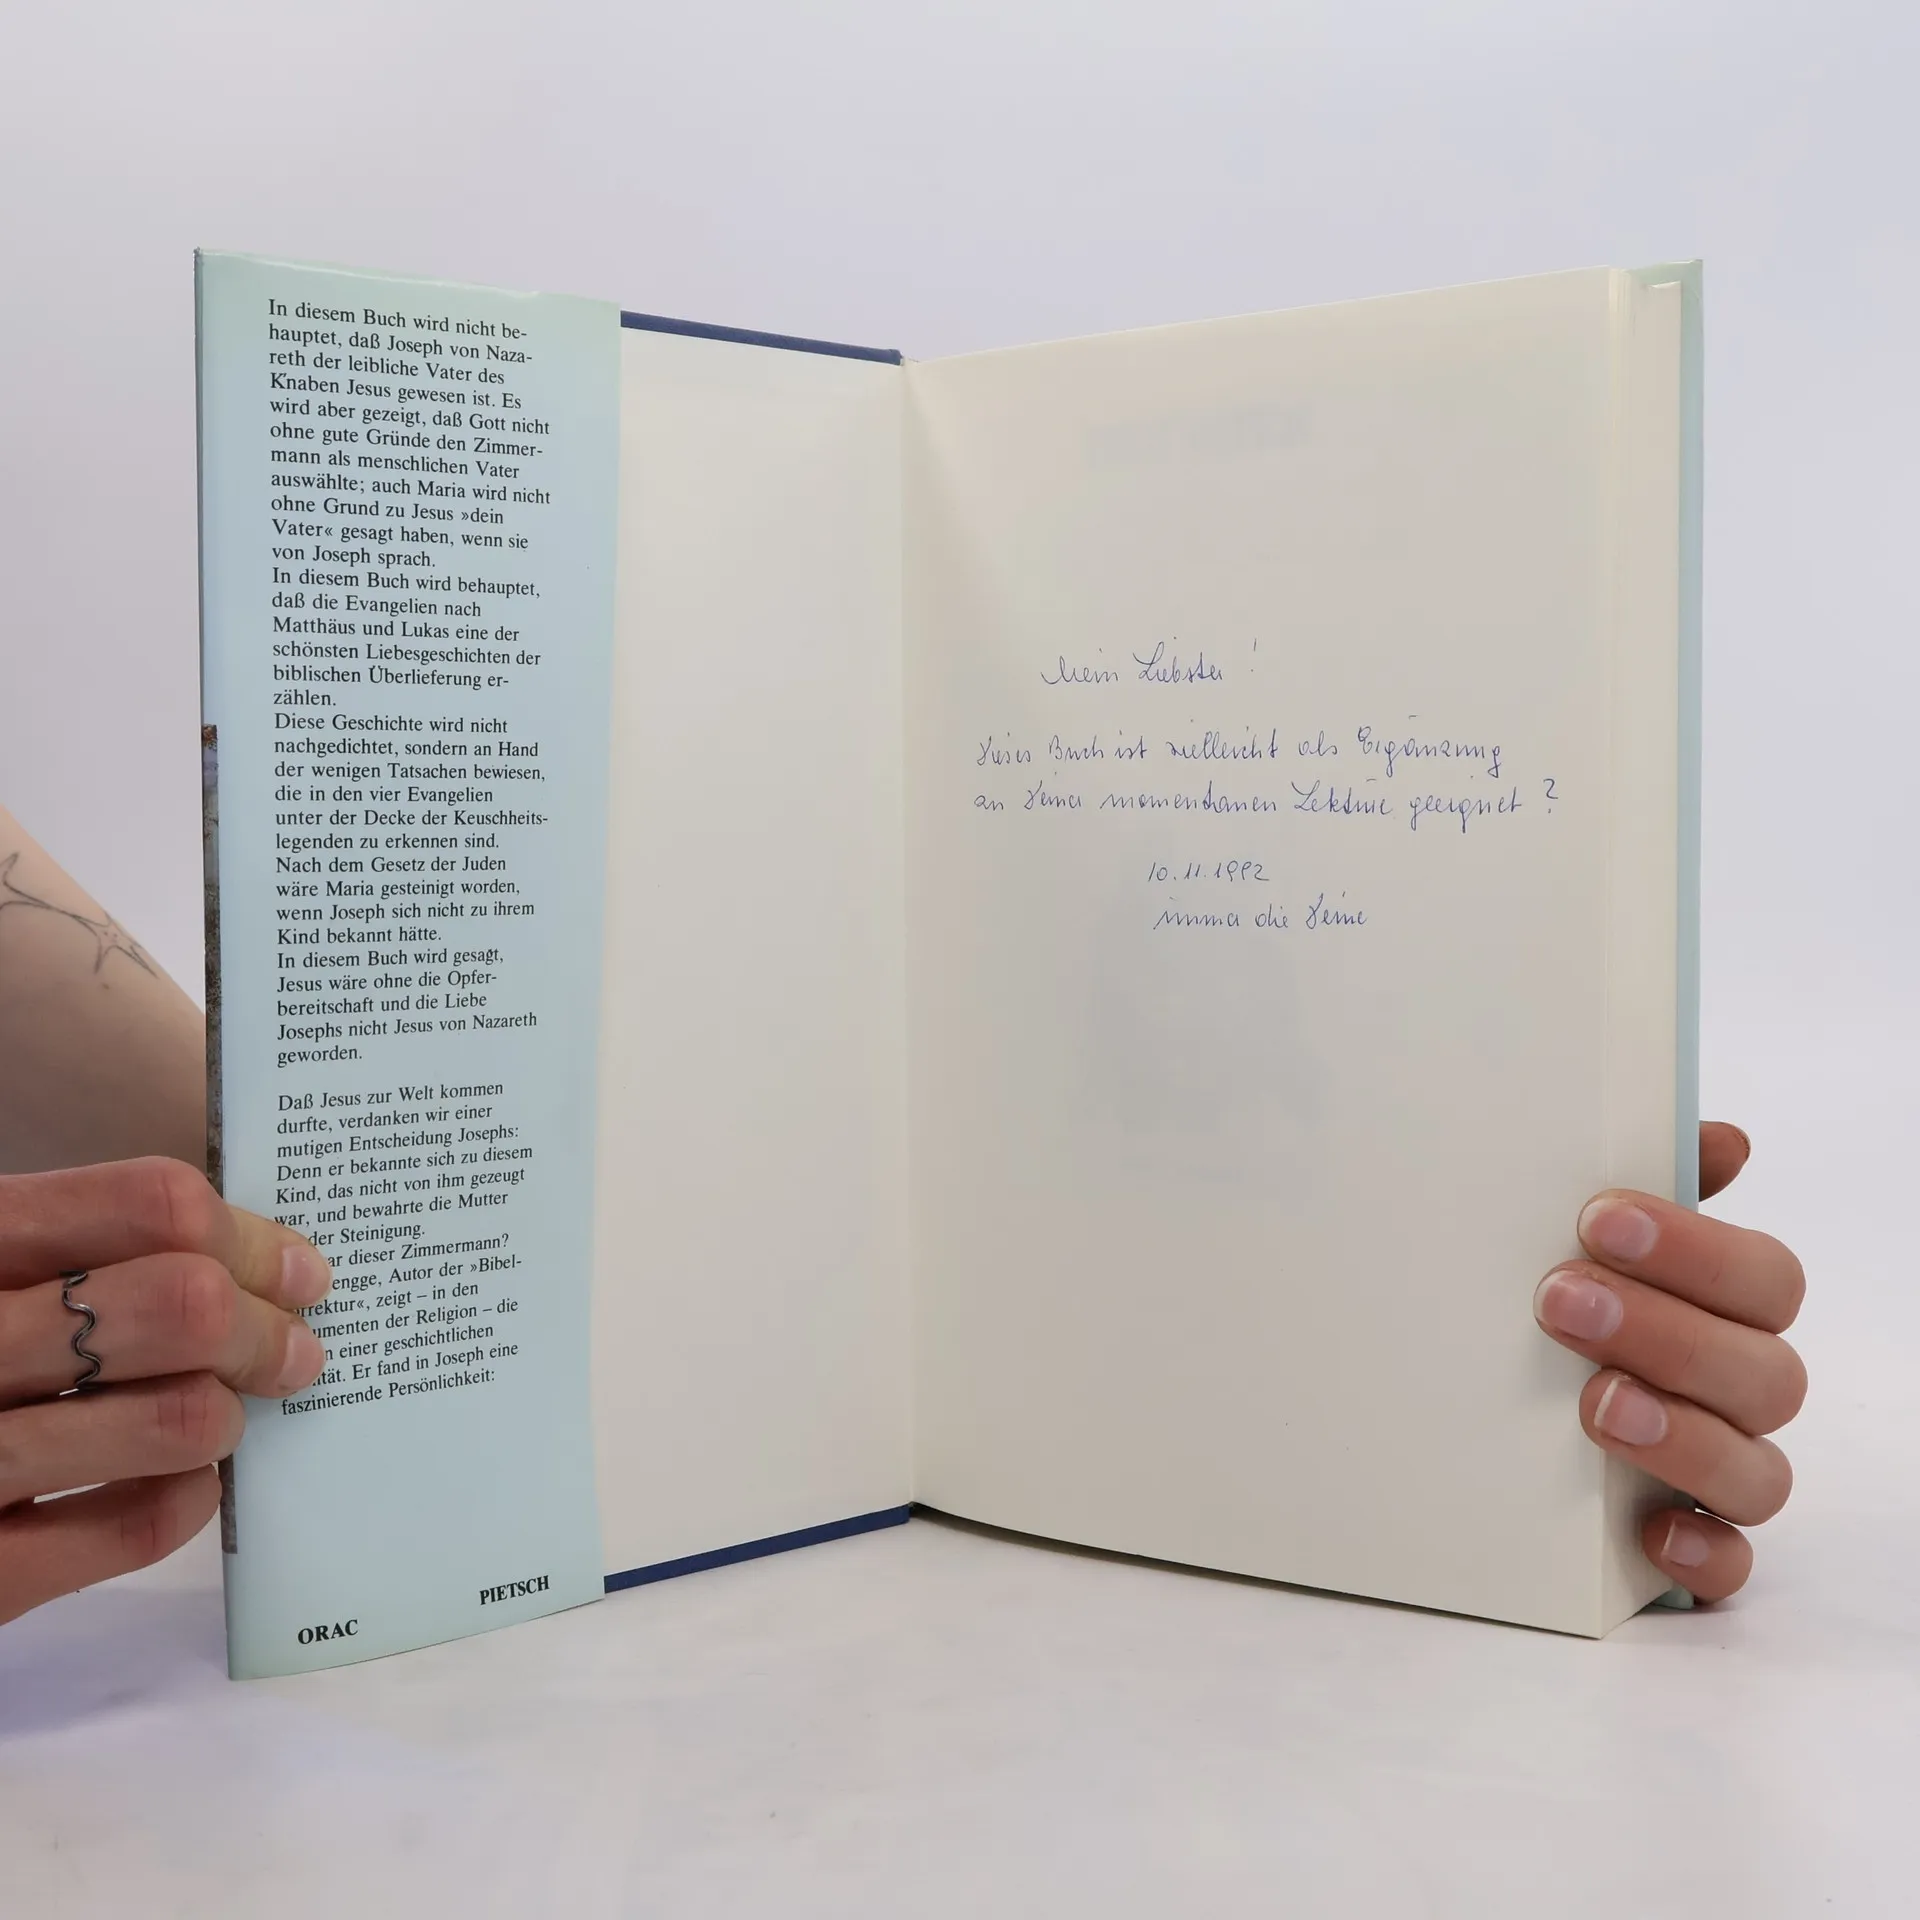 In diesem Buch wird nicht be-
hauptet, daß Joseph von Naza-
reth der leibliche Vater des
Knaben Jesus gewesen ist. Es
wird aber gezeigt, daß Gott nicht
ohne gute Gründe den Zimmer-
mann als menschlichen Vater
auswählte; auch Maria wird nicht
ohne Grund zu Jesus »dein
Vater« gesagt haben, wenn sie
von Joseph sprach.
In diesem Buch wird behauptet,
daß die Evangelien nach
Matthäus und Lukas eine der
schönsten Liebesgeschichten der
biblischen Überlieferung er-
zählen.
Diese Geschichte wird nicht
nachgedichtet, sondern an Hand
der wenigen Tatsachen bewiesen,
die in den vier Evangelien
unter der Decke der Keuschheits-
legenden zu erkennen sind.
Nach dem Gesetz der Juden
wäre Maria gesteinigt worden,
wenn Joseph sich nicht zu ihrem
Kind bekannt hätte.
In diesem Buch wird gesagt,
Jesus wäre ohne die Opfer-
bereitschaft und die Liebe
Josephs nicht Jesus von Nazareth
geworden.
Daß Jesus zur Welt kommen
durfte, verdanken wir einer
mutigen Entscheidung Josephs:
Denn er bekannte sich zu diesem
Kind, das nicht von ihm gezeugt
war, und bewahrte die Mutter
der Steinigung.
ar dieser Zimmermann?
engge, Autor der »Bibel-
rrektur«, zeigt – in den
umenten der Religion – die
n einer geschichtlichen
ität. Er fand in Joseph eine
faszinierende Persönlichkeit:
PIETSCH
ORAC
Mein Liebster!
Dieses Buch ist vielleicht als Ergänzung
an Deiner momentanen Lektüre geeignet?
10.11.1992
immer die Deine